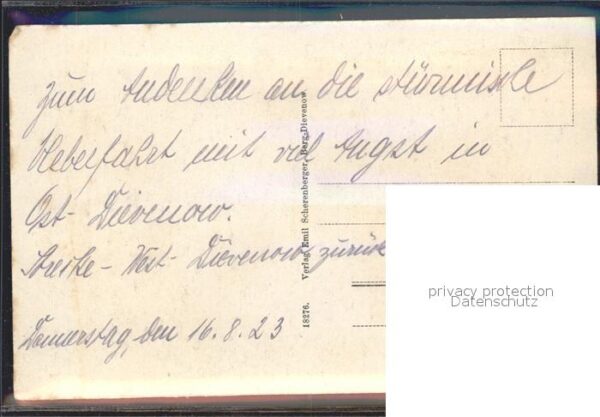 Zum Andenken an die stürmische
Ueberfahrt mit viel Angst in
Ost- Dievenow.
Strecke - West- Dievenow zurück
Donnerstag, den 16.8.23
18276. Verlag Emil Scherenberger, Berg-Dievenow
privacy protection
Datenschutz